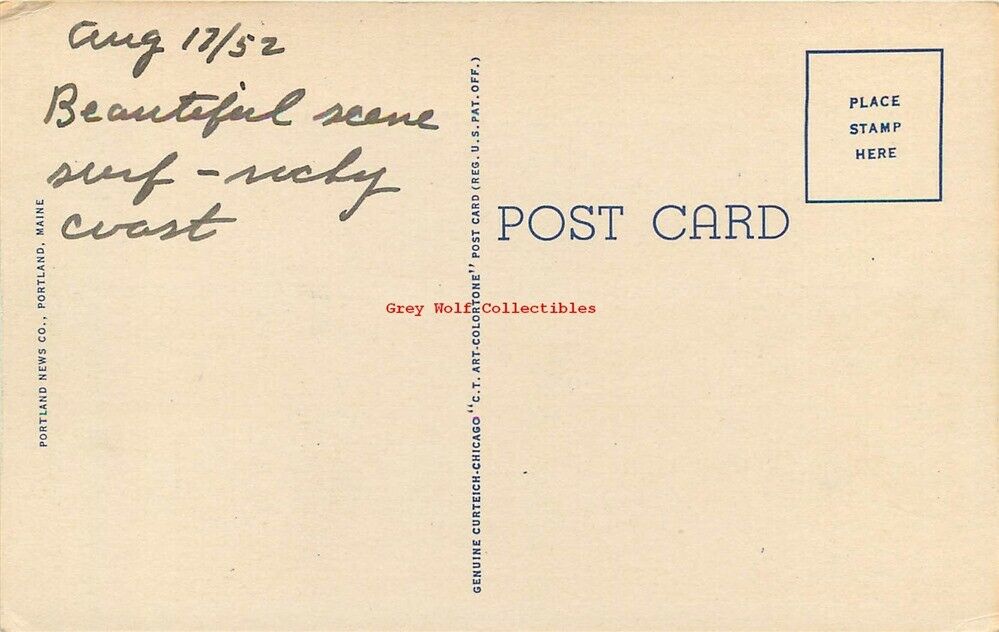 Aug 17/52
Beautiful scene
surf - rocky
coast
PORTLAND NEWS CO., PORTLAND, MAINE
GENUINE CURTEICH-CHICAGO "C.T. ART-COLORTONE" POST CARD (REG. U.S. PAT. OFF.)
POST CARD
PLACE
STAMP
HERE
Grey Wolf Collectibles